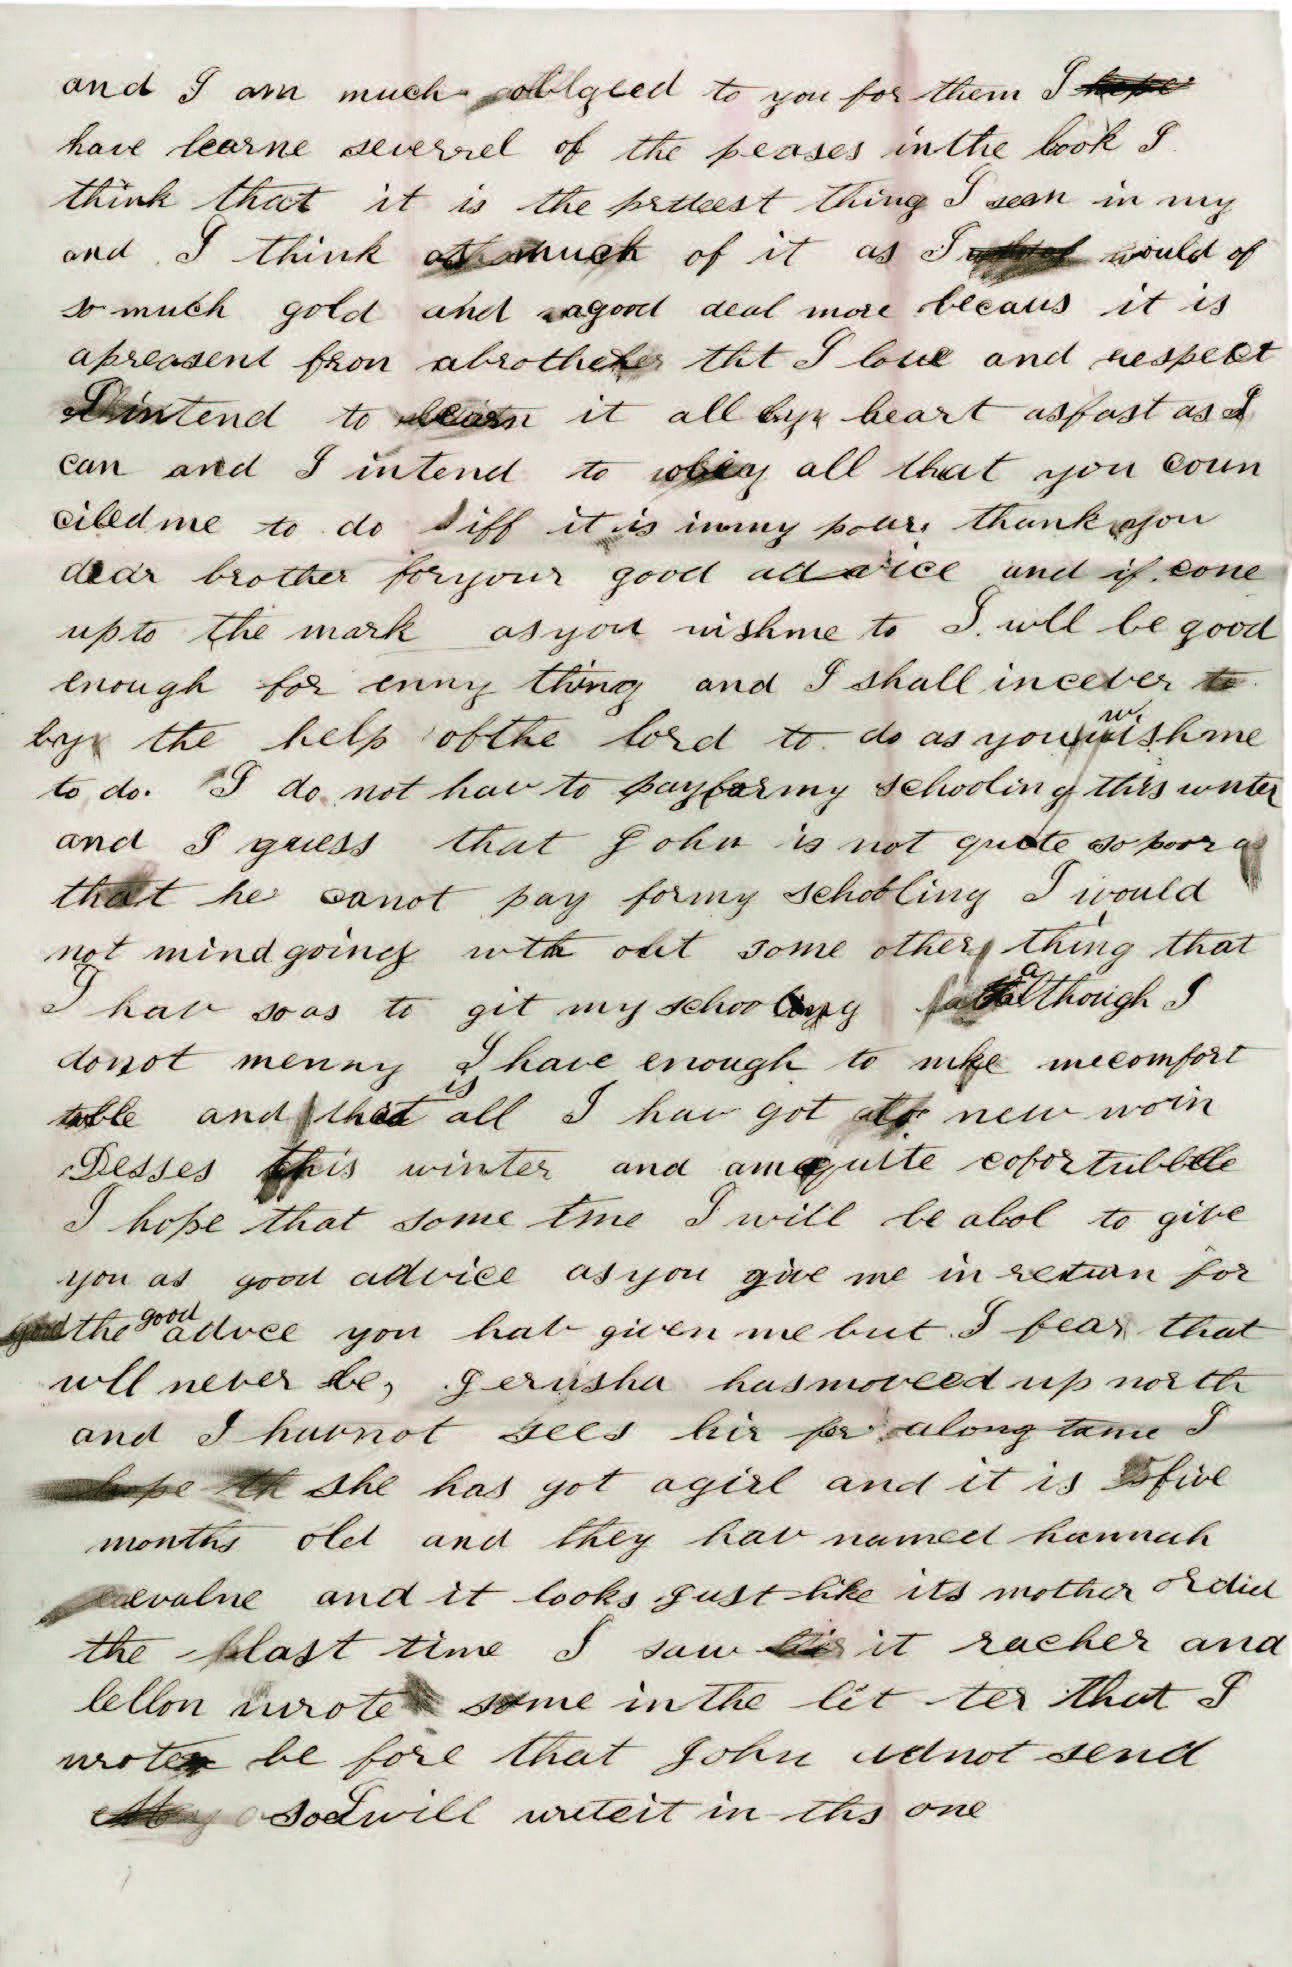 and I am much oblgied to you for them I hope
have learne severrel of the peases inthe book I
think that it is the pretteest thing I seen in my
and I think as much of it as I would of
so much gold and agood deal more becaus it is
apreasent fron abrotheher tht I love and respect
I intend to learn it all by heart asfast as I
can and I intend to obey all that you coun
ciledme to do iff it is inmy pour thank you
dear brother foryour good advice and if cone
upto the mark asyou wishme to I wll be good
enough for enny thing and I shall incever to
by the help ofthe lord to do as you wishme
to do. I do not hav to payformy schooling this wnter
and I guess that John is not quite so poor as
that he canot pay formy schooling I would
not mindgoing wth out some other thing that
I hav soas to git my schooling although I
donot menny I have enough to mke mecomfort
table and that is all I hav got new woin
Desses this winter and amquite cofortubble
I hope that some tme I will be abol to give
you as good advice asyou give me in return for
the good advce you hav given mebut I fear that
wll never be, Jerusha hasmoveed up north
and I havnot sees hir for along tame I
hope th she has got agirl and it is five
months old and they hav named hannah
evalne and it looks just like its mother ordid
the last time I saw it racher and
lellon wrote some inthe lit ter that I
wrote be fore that John udnot send
soIwill writeit in ths one